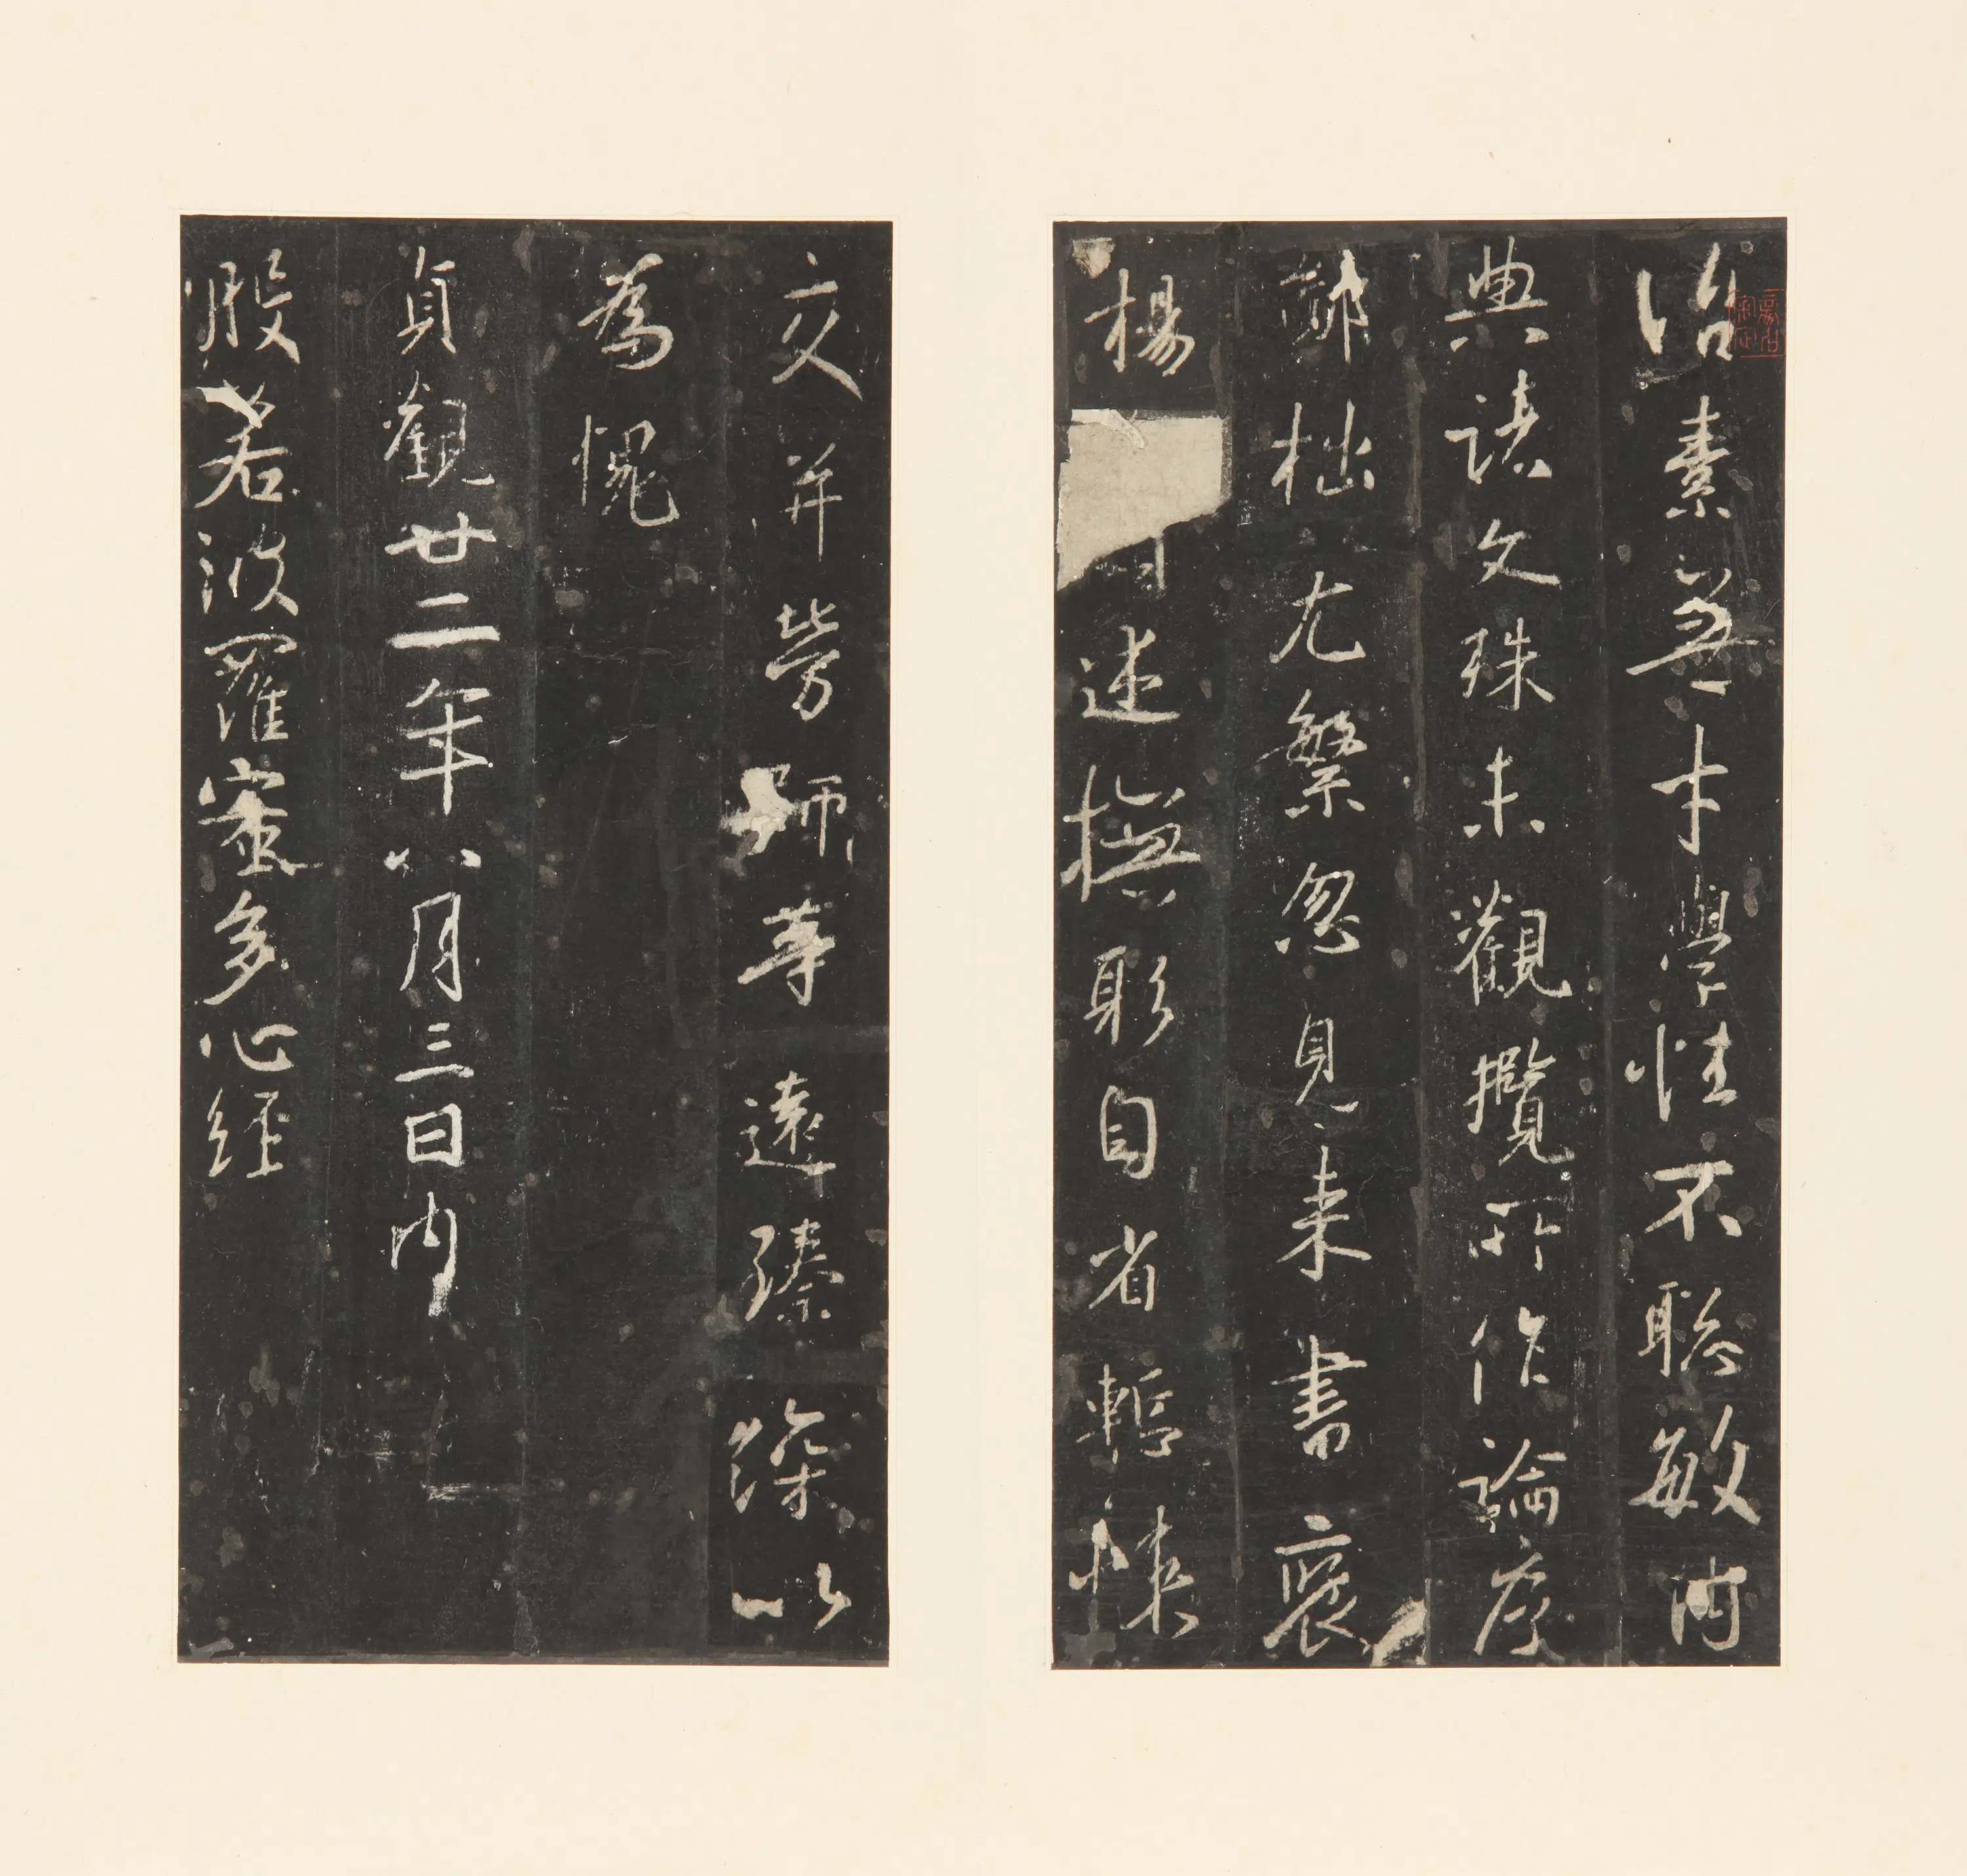 治素無才學性不聰敏內
典諸文殊未觀攬所作論序
鄙拙尤繁忽見來書褒
揚述撫躬自省慙悚
交并勞師等遠臻深以
為愧
貞觀廿二年八月三日內
般若波羅蜜多心經